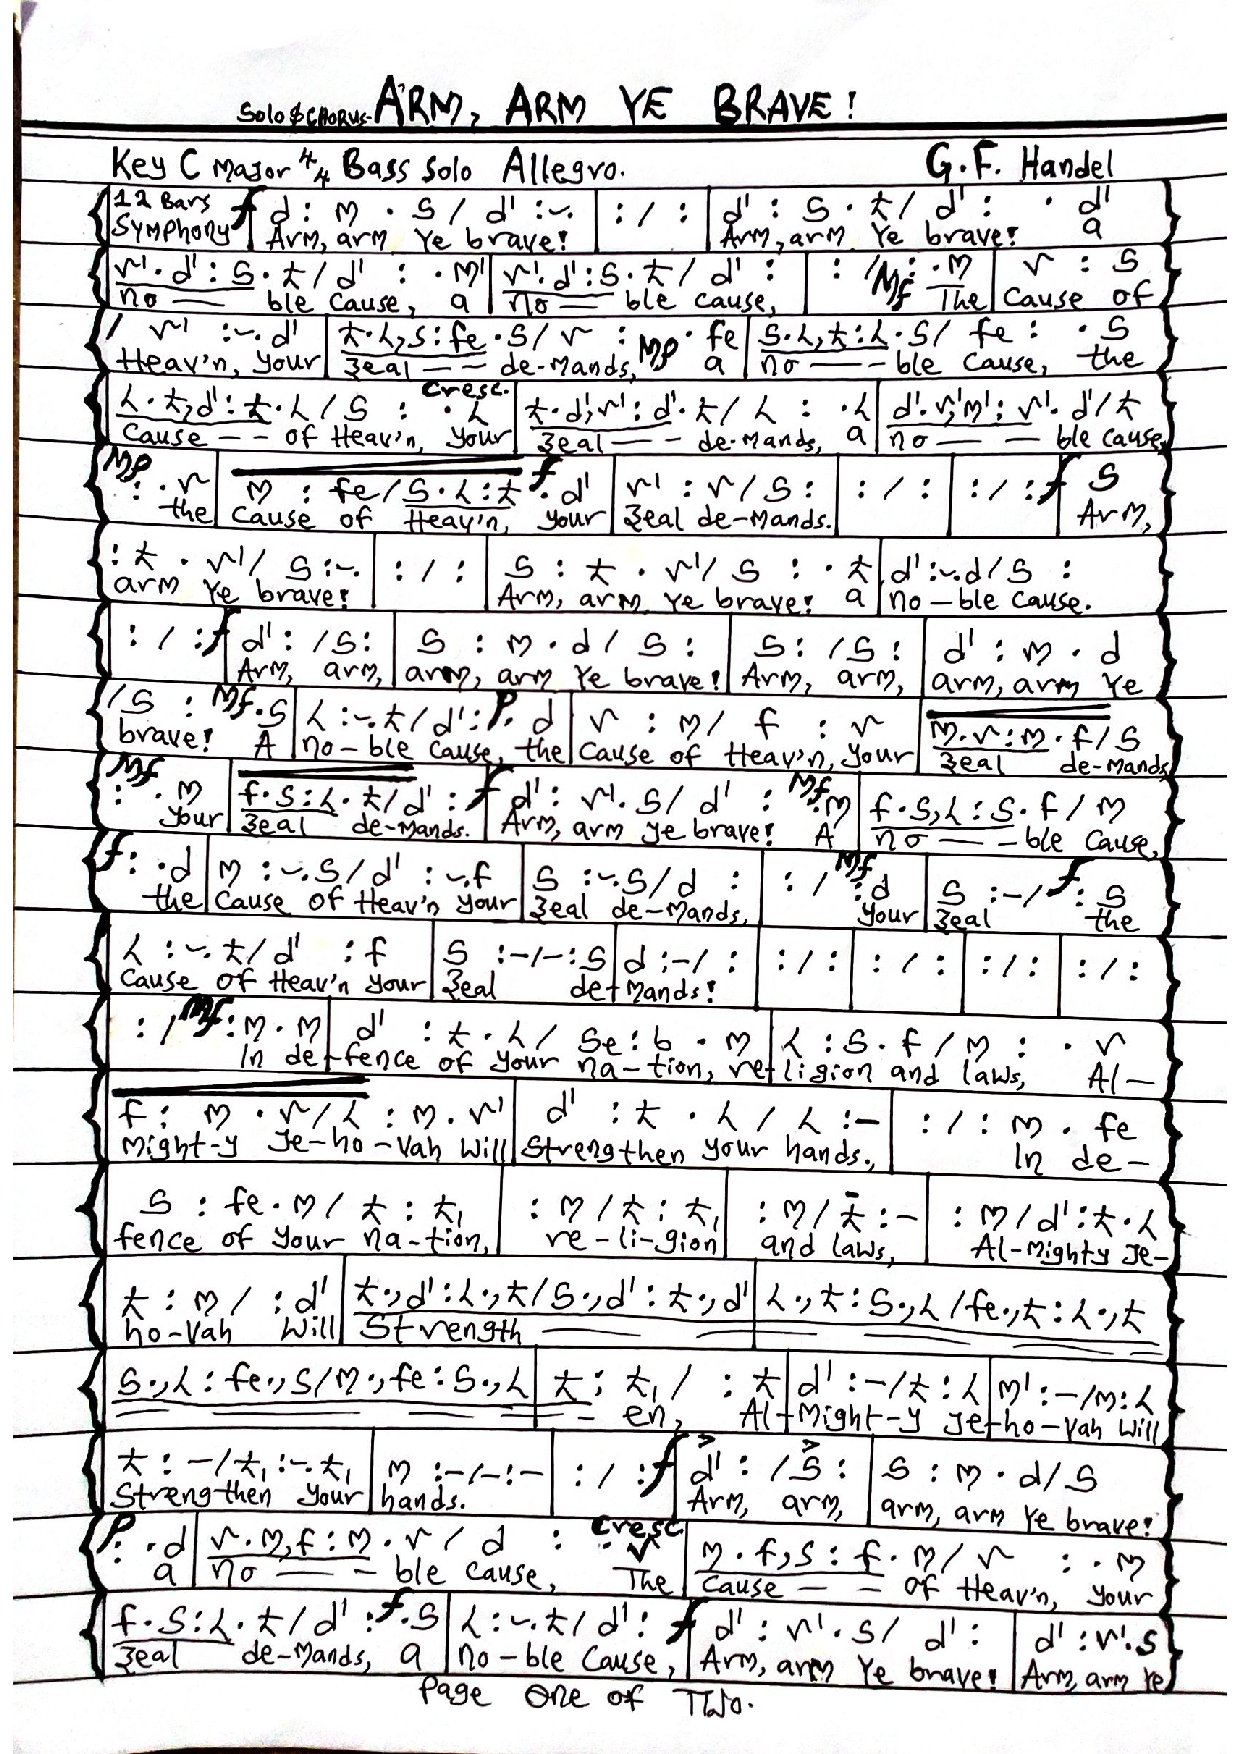 Solo & CHORUS- ARM, ARM YE BRAVE!
Key C Major 4/4 Bass Solo Allegro. G.F. Handel
12 Bars Symphony f d : m . s / d' :-. | : / : | d' : s . t / d' : . d'
Arm, arm Ye brave! Arm, arm Ye brave! a
r'. d' : s . t / d' : . m' | r'. d' : s . t / d' : | : / Mf : . m | r : s
no — ble Cause, a no — ble Cause, The Cause of
/ r' :-. d' | t . l, s : fe . s / r : Mp . fe | s . l, t : l . s / fe : . s
Heav'n, Your Zeal — — de-mands, a no — — ble Cause, the
l . t, d' : t . l / s : Cresc. . l | t . d', r' : d' . t / l : . l | d'. r', m' : r'. d' / t
Cause — — of Heav'n, Your Zeal — — de-mands, a no — — ble Cause,
Mp : . r | m : fe / s . l : t f . d' | r' : r / s : | : / : | : / : f s
the Cause of Heav'n, Your Zeal de-mands. Arm,
: t . r' / s :-. | : / : | s : t . r' / s : . t | d' :-. d / s :
arm Ye brave! Arm, arm Ye brave! a no-ble Cause.
: / : f | d' : / s : | s : m . d / s : | s : / s : | d' : m . d
Arm, arm, arm, arm Ye brave! Arm, arm, arm, arm Ye
/ s : Mf . s | l :-. t / d' : P . d | r : m / f : r | m . r : m . f / s
brave! A no-ble Cause, the Cause of Heav'n, Your Zeal de-mands
Mf : . m | f . s : l . t / d' : f | d' : r'. s / d' : Mf . m | f . s, l : s . f / m
Your Zeal de-mands. Arm, arm ye brave! A no — — ble Cause,
f : . d | m :-. s / d' :-. f | s :-. s / d : | : / Mf : d | s :- / f : s
the Cause of Heav'n Your Zeal de-mands, Your Zeal the
l :-. t / d' : f | s :-/-: s | d :-/ : | : / : | : / : | : / : | : / :
Cause of Heav'n Your Zeal de-mands!
: / Mf : m . m | d' : t . l / se : b . m | l : s . f / m : . r
In de-fence of Your na-tion, re-ligion and laws, Al-
f : m . r / l : m . r' | d' : t . l / l :- | : / : m . fe
Might-y Je-ho-Vah Will Strengthen Your hands., In de-
s : fe . m / t : t, | : m / t : t, | : m / t :- | : m / d' : t . l
fence of Your na-tion, re-li-gion and laws, Al-mighty Je-
t : m / : d' | t ., d' : l ., t / s ., d' : t ., d' | l ., t : s ., l / fe ., t : l ., t
ho-Vah Will Strength — — —
s ., l : fe ., s / m ., fe : s ., l | t : t, / : t | d' :- / t : l | m' :- / m : l
— — — en, Al-Might-y Je-ho-Vah Will
t :- / t, :-. t, | m :-/-:- | : / : f | d' : / s : | s : m . d / s
Strengthen Your hands. Arm, arm, arm, arm Ye brave!
P : . d | r . m, f : m . r / d : Cresc : r | m . f, s : f . m / r : . m
a no — — ble Cause, The Cause — — of Heav'n, Your
f . s : l . t / d' : f . s | l :-. t / d' : f | d' : r'. s / d' : | d' : r'. s
Zeal de-Mands, a no-ble Cause, Arm, arm Ye brave! Arm, arm Ye
Page One of Two.